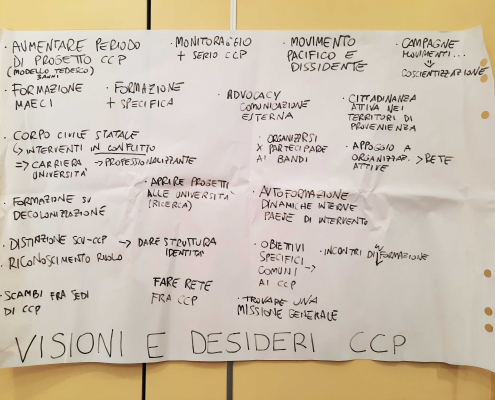 · AUMENTARE PERIODO
DI PROGETTO CCP
(MODELLO TEDESCO)
3ANNI
· MONITORAGGIO
+ SERIO CCP
· MOVIMENTO
PACIFICO E
DISSIDENTE
· CAMPAGNE
MOVIMENTI...
⇓
COSCIENTIZZAZIONE
· FORMAZIONE
MAECI
· FORMAZIONE
+ SPECIFICA
· ADVOCACY
COMUNICAZIONE
ESTERNA
· CITTADINANZA
ATTIVA NEI
TERRITORI DI
PROVENIENZA
· CORPO CIVILE STATALE
↳ INTERVENTI IN CONFLITTO
=> CARRIERA → PROFESSIONALIZZANTE
UNIVERSITÀ
· ORGANIZZARSI
X PARTECIPARE
AI BANDI
· APPOGGIO A
ORGANIZZAZ. > RETE
ATTIVE
· APRIRE PROGETTI
ALLE UNIVERSITÀ
(RICERCA)
· FORMAZIONE SU
DECOLONIZZAZIONE
· AUTOFORMAZIONE
DINAMICHE INTERNE
PAESE DI INTERVENTO
· DISTINZIONE SCU-CCP → DARE STRUTTURA
IDENTITÀ
· RICONOSCIMENTO RUOLO
· OBIETTIVI
SPECIFICI
COMUNI →
AI CCP
· INCONTRI DI FORMAZIONE
· SCAMBI FRA SEDI
DI CCP
FARE RETE
FRA CCP
· TROVARE UNA
MISSIONE GENERALE
VISIONI E DESIDERI CCP